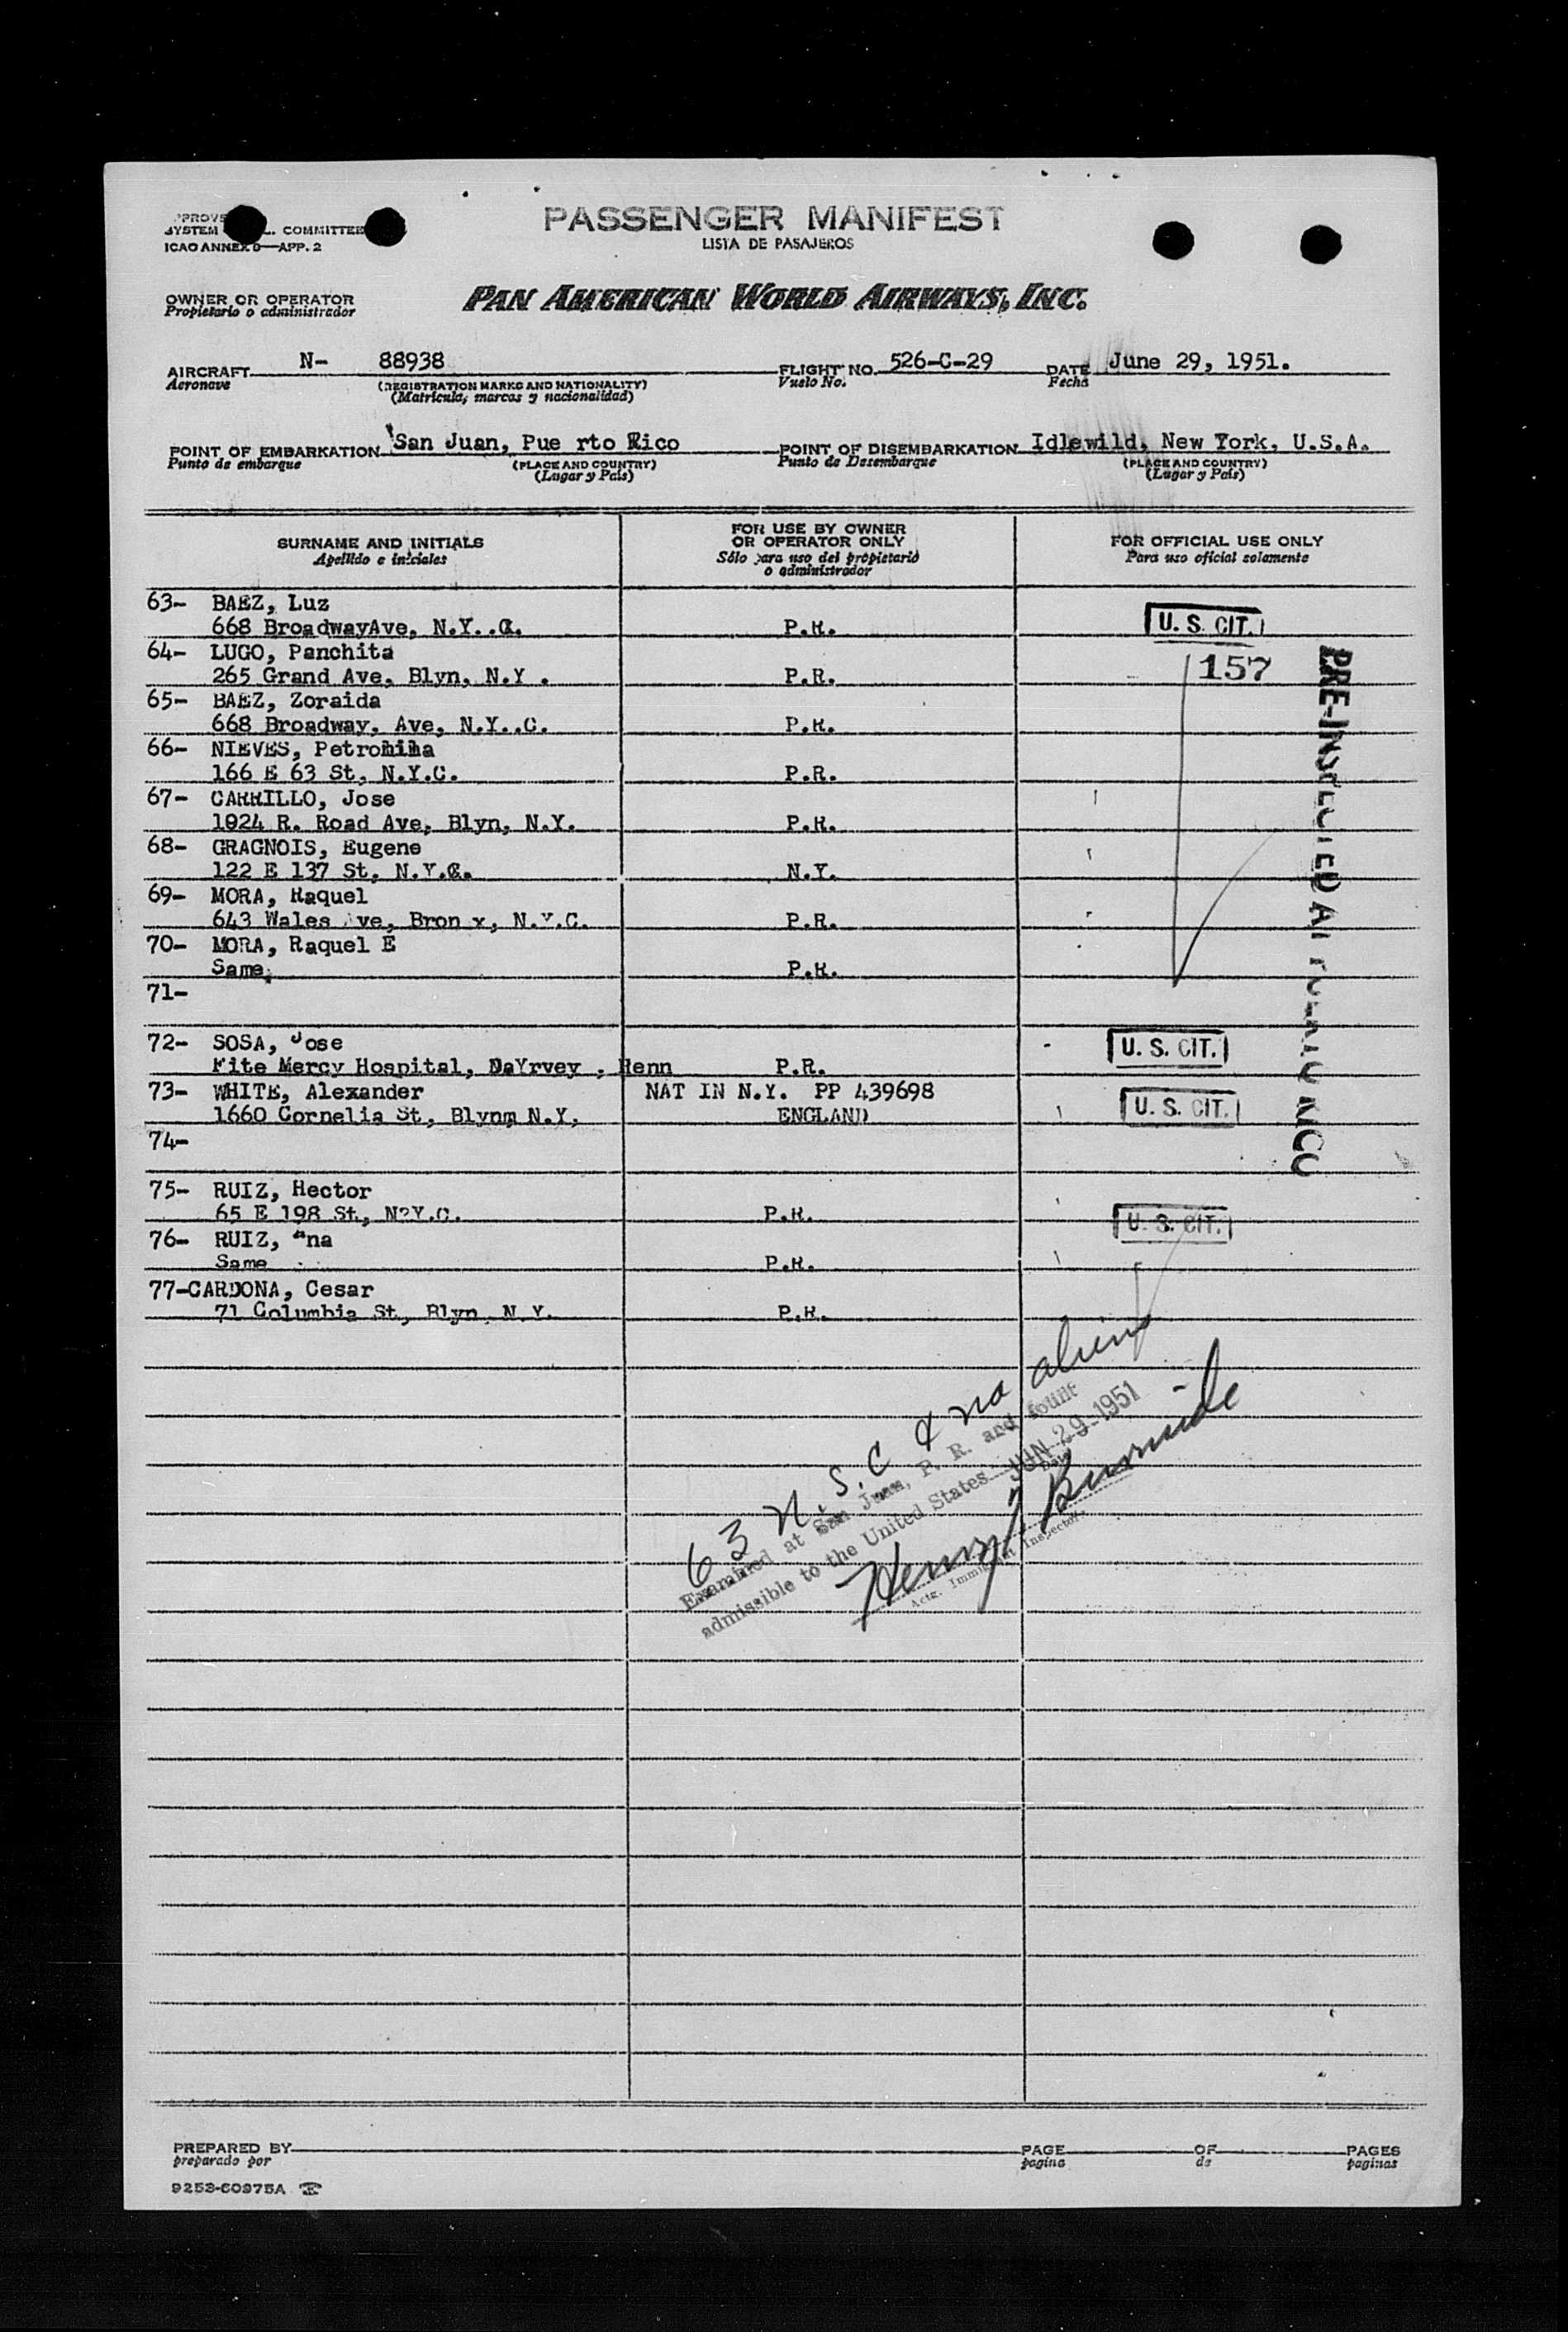 PASSENGER MANIFEST
LISTA DE PASAJEROS
SYSTEM COMMITTEE
ICAO ANNEX 9—APP. 2
OWNER OR OPERATOR
Propietario o administrador
PAN AMERICAN WORLD AIRWAYS, INC.
AIRCRAFT N- 88938 FLIGHT NO. 526-C-29 DATE June 29, 1951.
Aeronave (REGISTRATION MARKS AND NATIONALITY) Vuelo No. Fecha
(Matrícula, marcas y nacionalidad)
POINT OF EMBARKATION San Juan, Pue rto Rico POINT OF DISEMBARKATION Idlewild, New York, U.S.A.
Punto de embarque (PLACE AND COUNTRY) Punto de Desembarque (PLACE AND COUNTRY)
(Lugar y País) (Lugar y País)
SURNAME AND INITIALS
Apellido e iniciales
FOR USE BY OWNER
OR OPERATOR ONLY
Sólo para uso del propietario
o administrador
FOR OFFICIAL USE ONLY
Para uso oficial solamente
63- BAEZ, Luz
668 BroadwayAve, N.Y..C. P.R. U. S. CIT.
64- LUGO, Panchita 157
265 Grand Ave, Blyn, N.Y . P.R.
65- BAEZ, Zoraida
668 Broadway, Ave, N.Y..C. P.R.
66- NIEVES, Petronina
166 E 63 St, N.Y.C. P.R.
67- CARRILLO, Jose
1024 R. Road Ave, Blyn, N.Y. P.R.
68- GRAGNOIS, Eugene
122 E 137 St, N.Y.C. N.Y.
69- MORA, Raquel
643 Wales Ave, Bron x, N.Y.C. P.R.
70- MORA, Raquel E
Same P.R.
71-
72- SOSA, Jose U. S. CIT.
Fite Mercy Hospital, DaYrvey , Henn P.R.
73- WHITE, Alexander NAT IN N.Y. PP 439698
1660 Cornelia St, Blynm N.Y, ENGLAND U. S. CIT.
74-
75- RUIZ, Hector
65 E 198 St, N?Y.C. P.R. U. S. CIT.
76- RUIZ, Ana
Same P.R.
77-CARDONA, Cesar
71 Columbia St, Blyn N.Y. P.R.
PRE-INSPECTED AT PUERTO RICO
63 U.S.C & no aliens
Examined at San Juan, P. R. and found
admissible to the United States JUN 29 1951
Date
Henry Burnside
Actg. Immigrant Inspector
PREPARED BY PAGE OF PAGES
preparado por pagina de paginas
9253-60975A